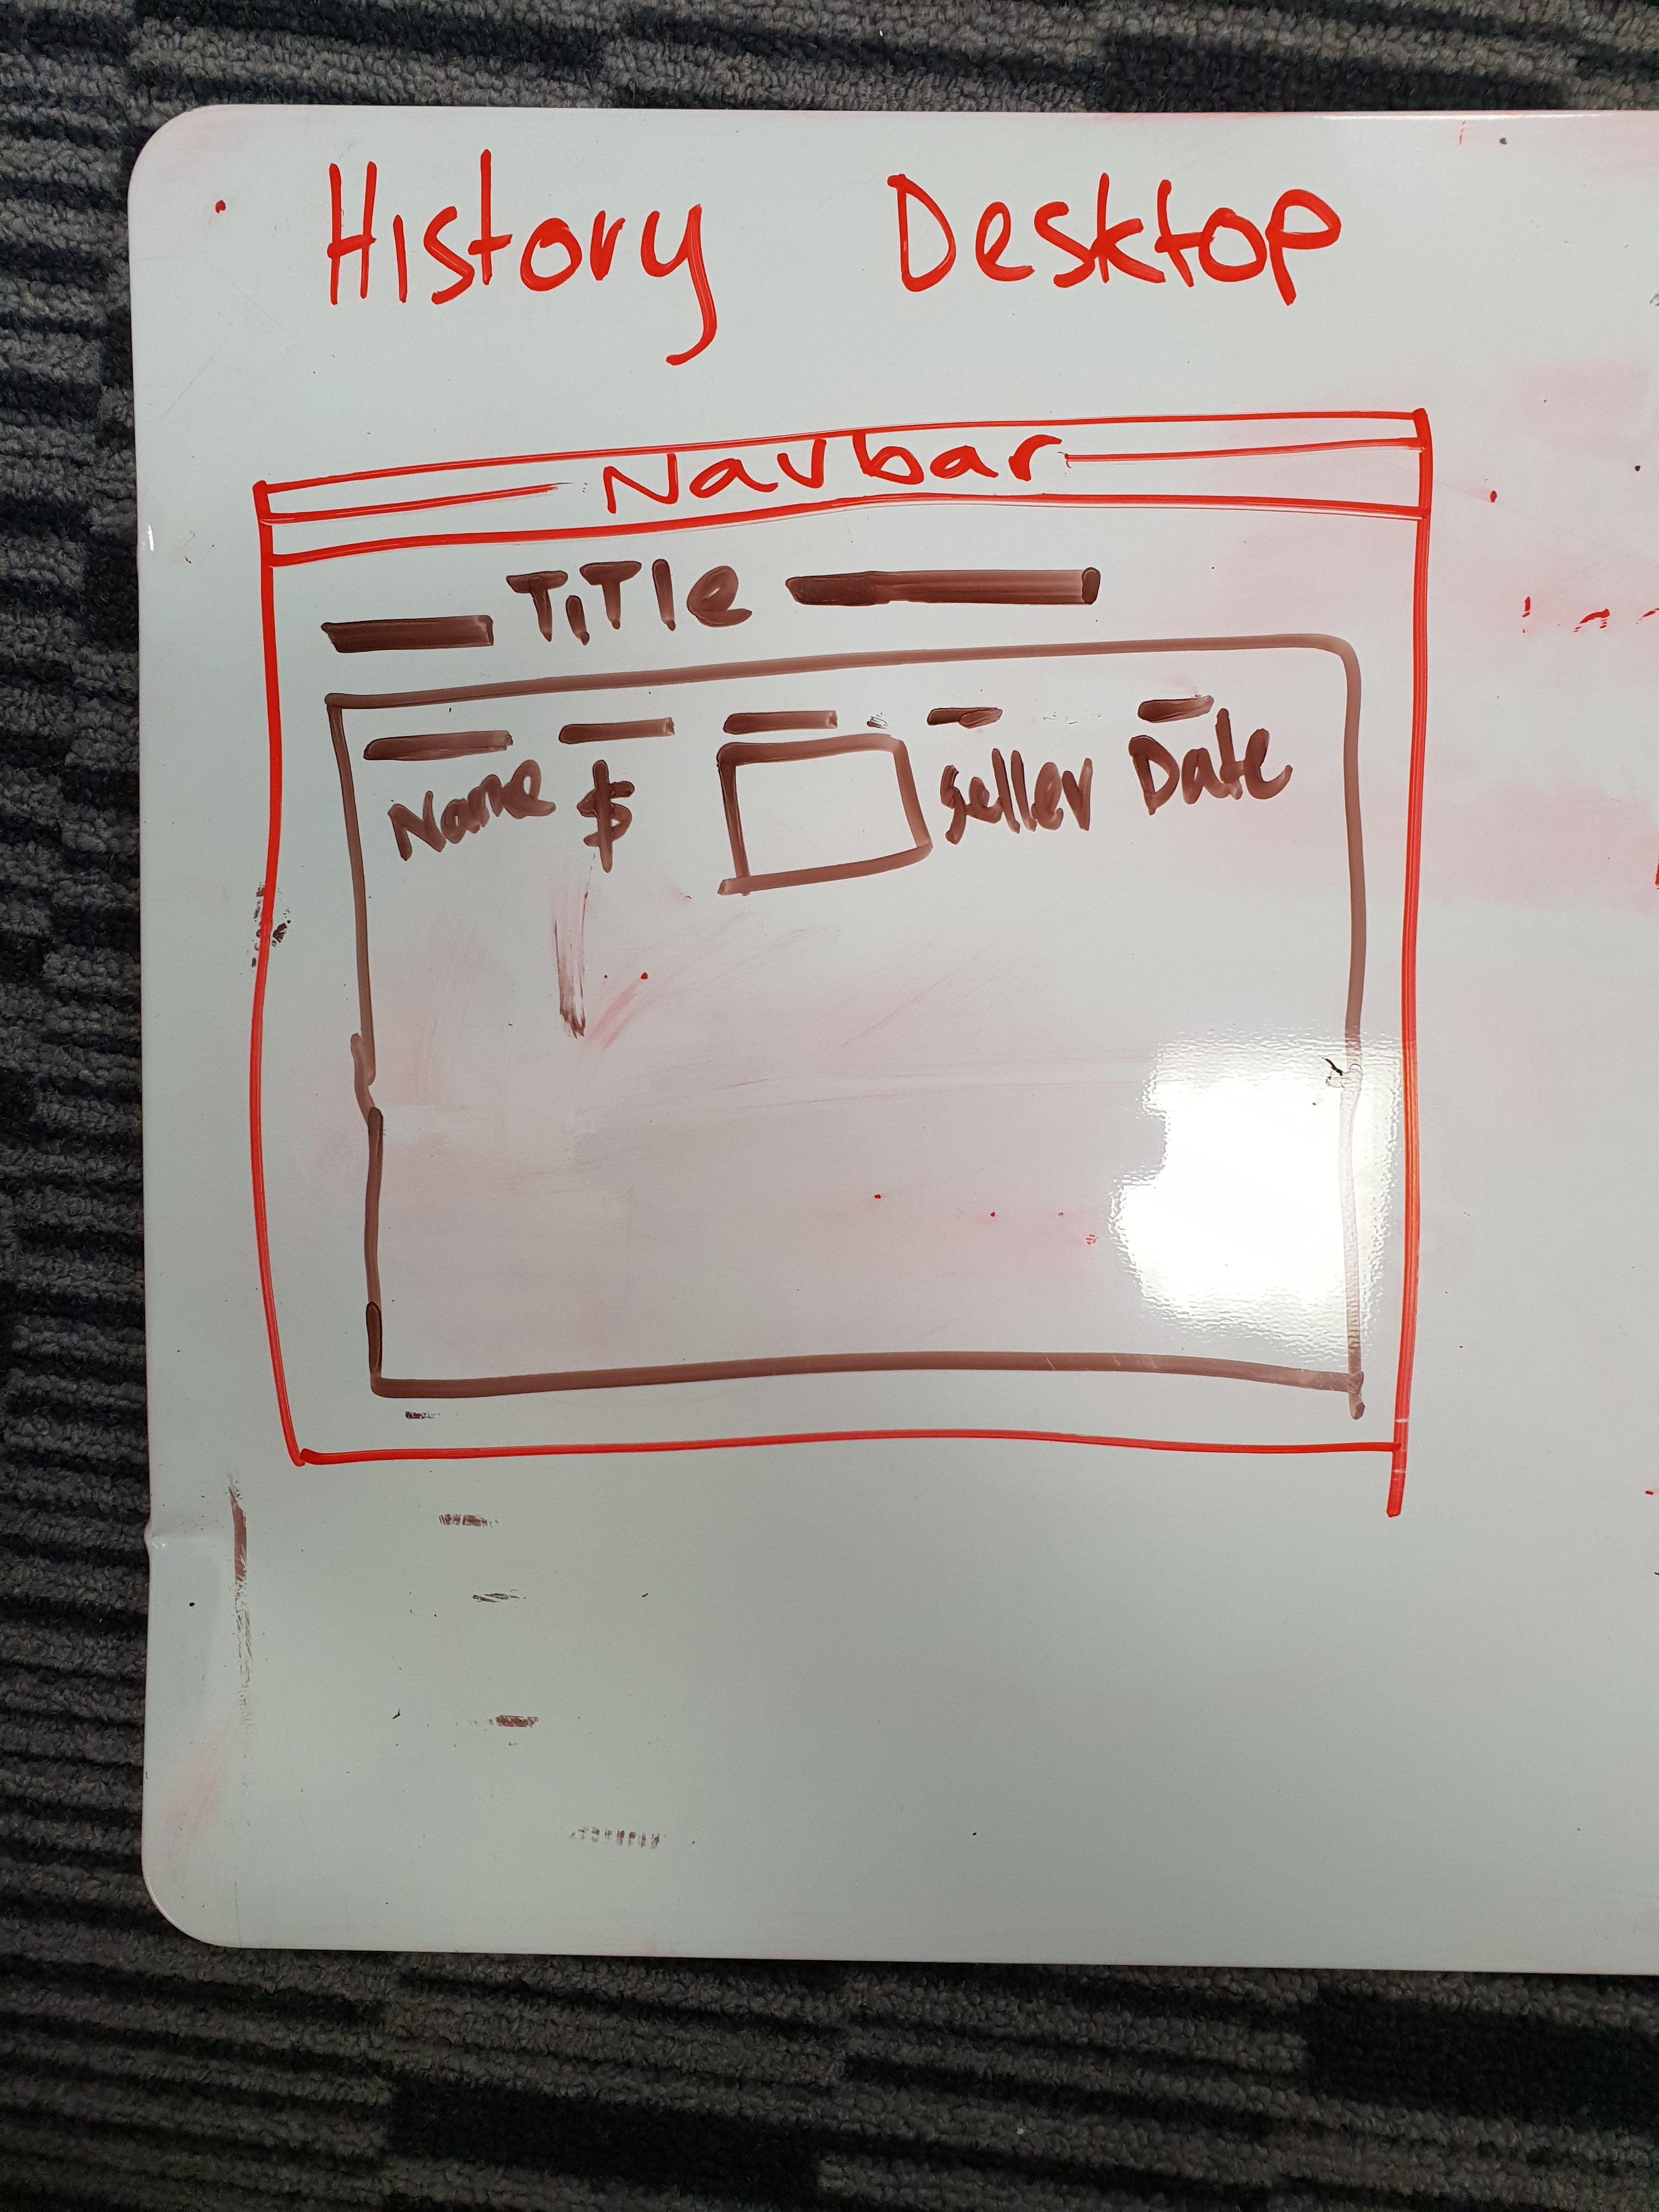 History Desktop
Navbar
TiTle
Name $ seller Date